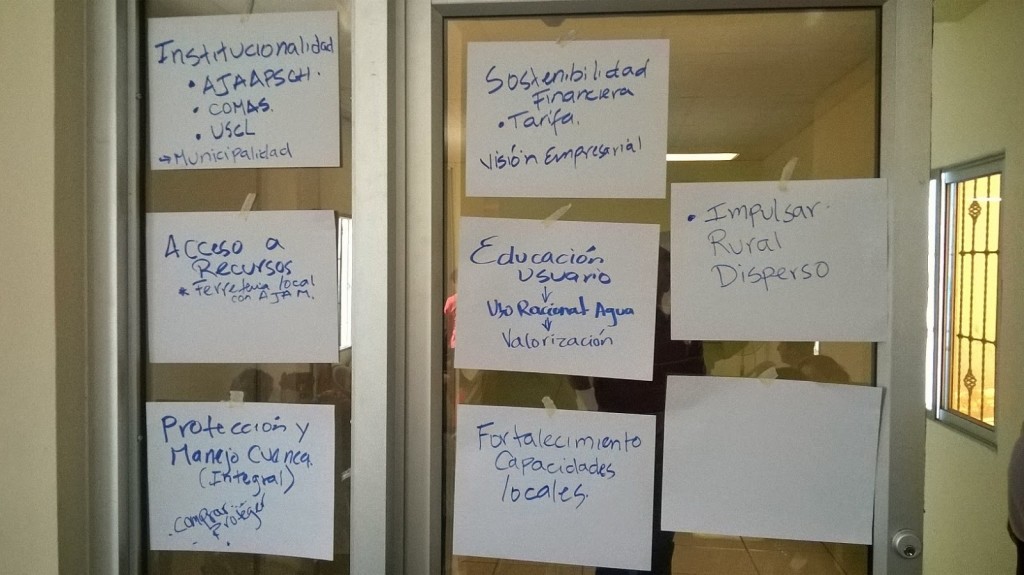 Institucionalidad
• AJAAPSCH.
• COMAS.
• USCL
→ Municipalidad
Acceso a
Recursos
* Ferreteria local
con AJAM.
Protección y
Manejo Cuenca
(Integral)
Comprar
Proteger
Sostenibilidad
Financiera
• Tarifa.
Visión Empresarial
Educación
Usuario
↓
Uso Racional Agua
↓
Valorización
Fortalecimiento
Capacidades
locales.
• Impulsar
Rural
Disperso